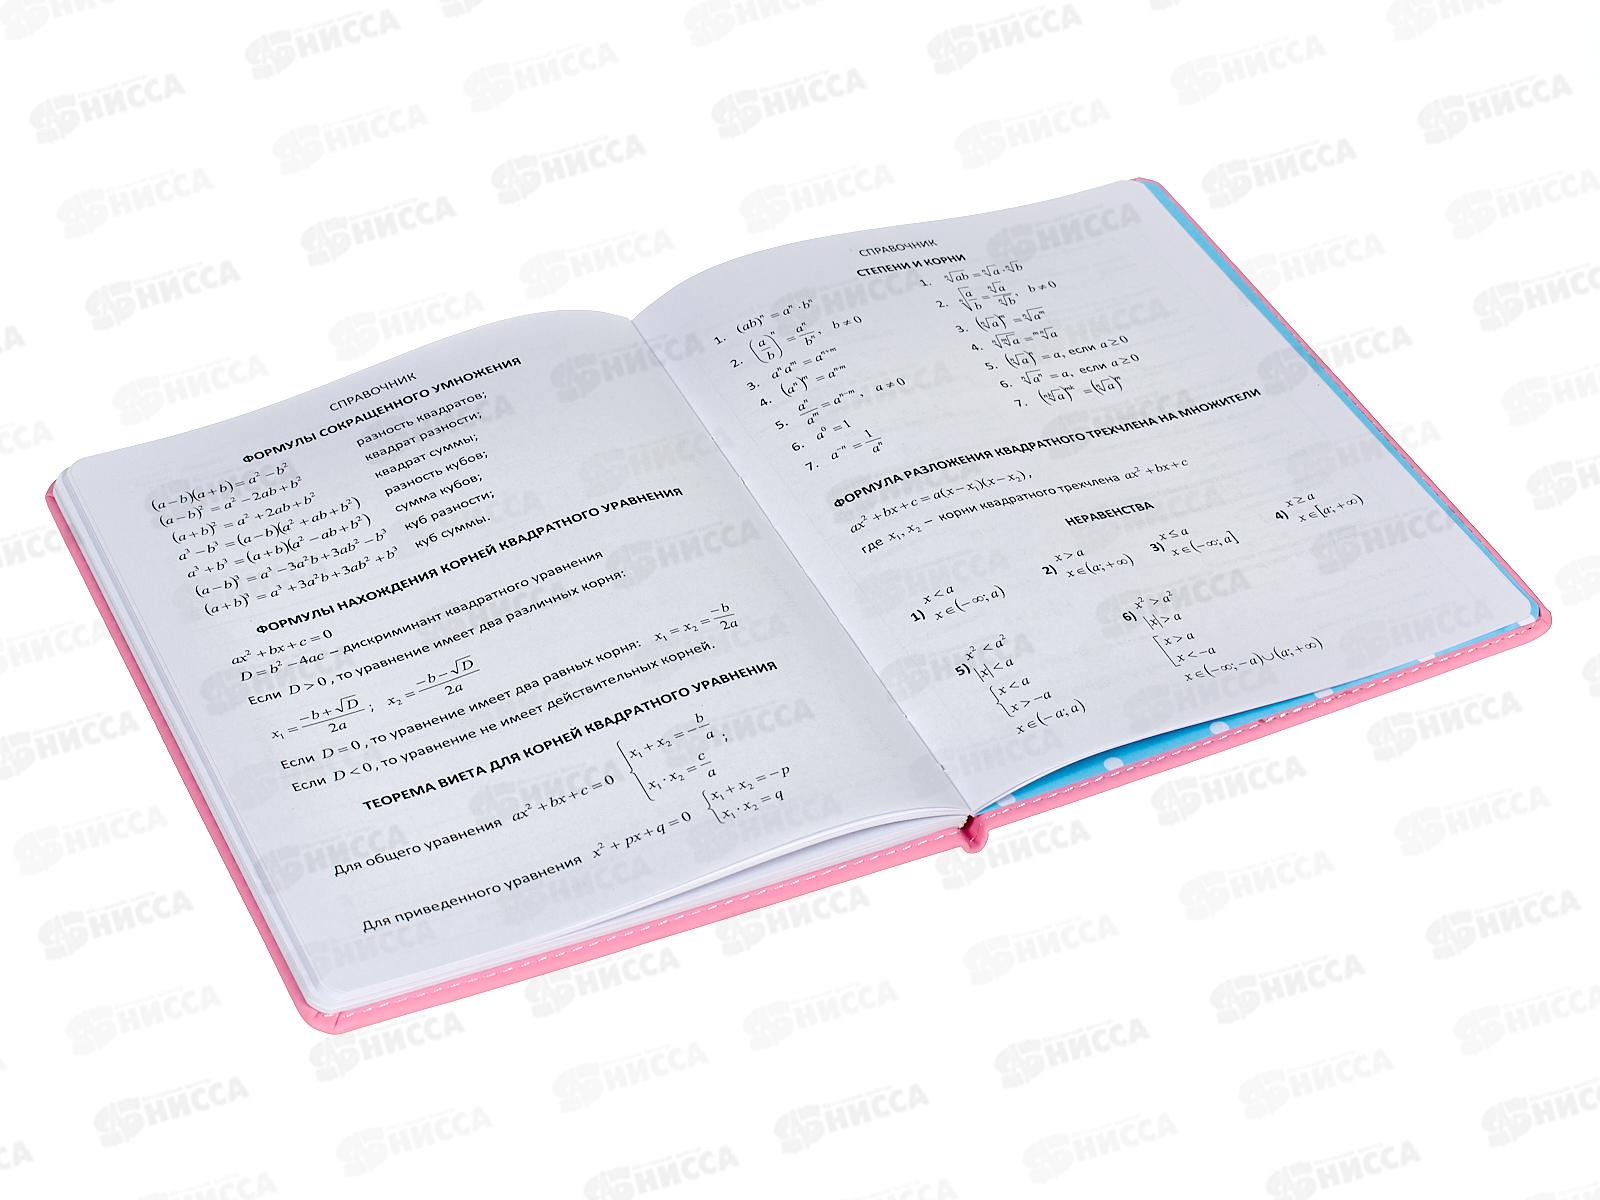 СПРАВОЧНИК
ФОРМУЛЫ СОКРАЩЕННОГО УМНОЖЕНИЯ
(a−b)(a+b) = a² − b² разность квадратов;
(a−b)² = a² − 2ab + b² квадрат разности;
(a+b)² = a² + 2ab + b² квадрат суммы;
a³ − b³ = (a−b)(a² + ab + b²) разность кубов;
a³ + b³ = (a+b)(a² − ab + b²) сумма кубов;
(a−b)³ = a³ − 3a²b + 3ab² − b³ куб разности;
(a+b)³ = a³ + 3a²b + 3ab² + b³ куб суммы.
ФОРМУЛЫ НАХОЖДЕНИЯ КОРНЕЙ КВАДРАТНОГО УРАВНЕНИЯ
ax² + bx + c = 0
D = b² − 4ac – дискриминант квадратного уравнения
Если D > 0, то уравнение имеет два различных корня:
x₁ = (−b + √D)/2a ; x₂ = (−b − √D)/2a
Если D = 0, то уравнение имеет два равных корня: x₁ = x₂ = −b/2a
Если D < 0, то уравнение не имеет действительных корней.
ТЕОРЕМА ВИЕТА ДЛЯ КОРНЕЙ КВАДРАТНОГО УРАВНЕНИЯ
Для общего уравнения ax² + bx + c = 0 { x₁ + x₂ = −b/a ;
x₁ · x₂ = c/a
Для приведенного уравнения x² + px + q = 0 { x₁ + x₂ = −p
x₁ · x₂ = q
СПРАВОЧНИК
СТЕПЕНИ И КОРНИ
1. (ab)ⁿ = aⁿ · bⁿ
2. (a/b)ⁿ = aⁿ/bⁿ, b ≠ 0
3. aⁿaᵐ = aⁿ⁺ᵐ
4. (aⁿ)ᵐ = aⁿᵐ
5. aⁿ/aᵐ = aⁿ⁻ᵐ, a ≠ 0
6. a⁰ = 1
7. a⁻ⁿ = 1/aⁿ
1. ⁿ√ab = ⁿ√a · ⁿ√b
2. ⁿ√(a/b) = ⁿ√a/ⁿ√b, b ≠ 0
3. (ⁿ√a)ᵐ = ⁿ√aᵐ
4. ⁿ√ᵐ√a = ᵐⁿ√a
5. (ⁿ√a)ⁿ = a, если a ≥ 0
6. ⁿ√aⁿ = a, если a ≥ 0
7. (ⁿᵏ√a)ᵐᵏ = (ⁿ√a)ᵐ
ФОРМУЛА РАЗЛОЖЕНИЯ КВАДРАТНОГО ТРЕХЧЛЕНА НА МНОЖИТЕЛИ
ax² + bx + c = a(x − x₁)(x − x₂),
где x₁, x₂ – корни квадратного трехчлена ax² + bx + c
НЕРАВЕНСТВА
1) x < a
x ∈ (−∞; a)
2) x > a
x ∈ (a; +∞)
3) x ≤ a
x ∈ (−∞; a]
4) x ≥ a
x ∈ [a; +∞)
5) x² < a²
|x| < a
{ x < a
x > −a
x ∈ (−a; a)
6) x² > a²
|x| > a
[ x > a
x < −a
x ∈ (−∞; −a) ∪ (a; +∞)
НИССА